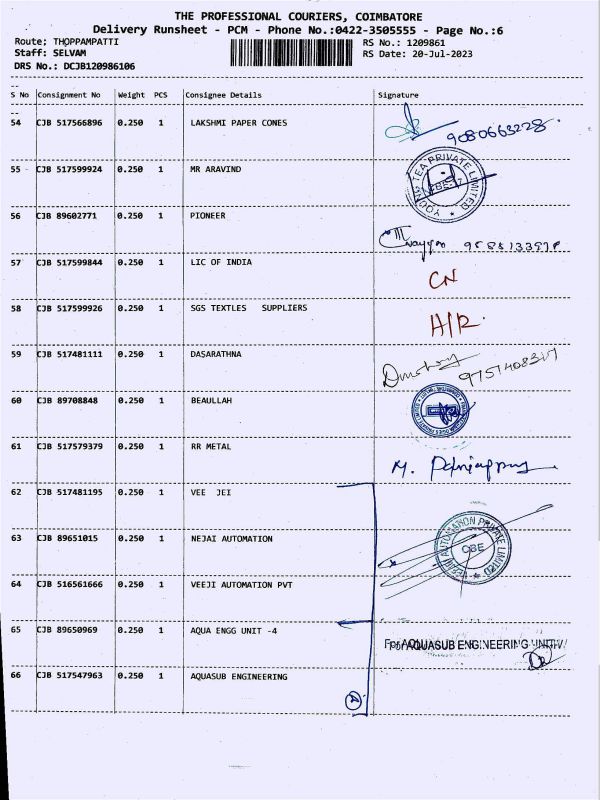 THE PROFESSIONAL COURIERS, COIMBATORE
Delivery Runsheet - PCM - Phone No.:0422-3505555 - Page No.:6
Route; THOPPAMPATTI RS No.: 1209861
Staff: SELVAM RS Date: 20-Jul-2023
DRS No.: DCJB120986106
S No Consignment No Weight PCS Consignee Details Signature
54 CJB 517566896 0.250 1 LAKSHMI PAPER CONES 9080663228
55 CJB 517599924 0.250 1 MR ARAVIND TEA PRIVATE LIMITED
56 CJB 89602771 0.250 1 PIONEER
57 CJB 517599844 0.250 1 LIC OF INDIA CN
58 CJB 517599926 0.250 1 SGS TEXTLES SUPPLIERS H/R
59 CJB 517481111 0.250 1 DASARATHNA
60 CJB 89708848 0.250 1 BEAULLAH
61 CJB 517579379 0.250 1 RR METAL M.
62 CJB 517481195 0.250 1 VEE JEI
63 CJB 89651015 0.250 1 NEJAI AUTOMATION AUTOMATION PRIVATE LIMITED CBE
64 CJB 516561666 0.250 1 VEEJI AUTOMATION PVT
65 CJB 89650969 0.250 1 AQUA ENGG UNIT -4 For AQUASUB ENGINEERING UNIT
66 CJB 517547963 0.250 1 AQUASUB ENGINEERING